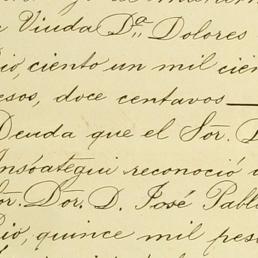 Viuda D.ª Dolores
ciento un mil cien
pesos, doce centavos
Deuda que el Sor. D
reconoció
Dor. D. José Pabl
quince mil pes